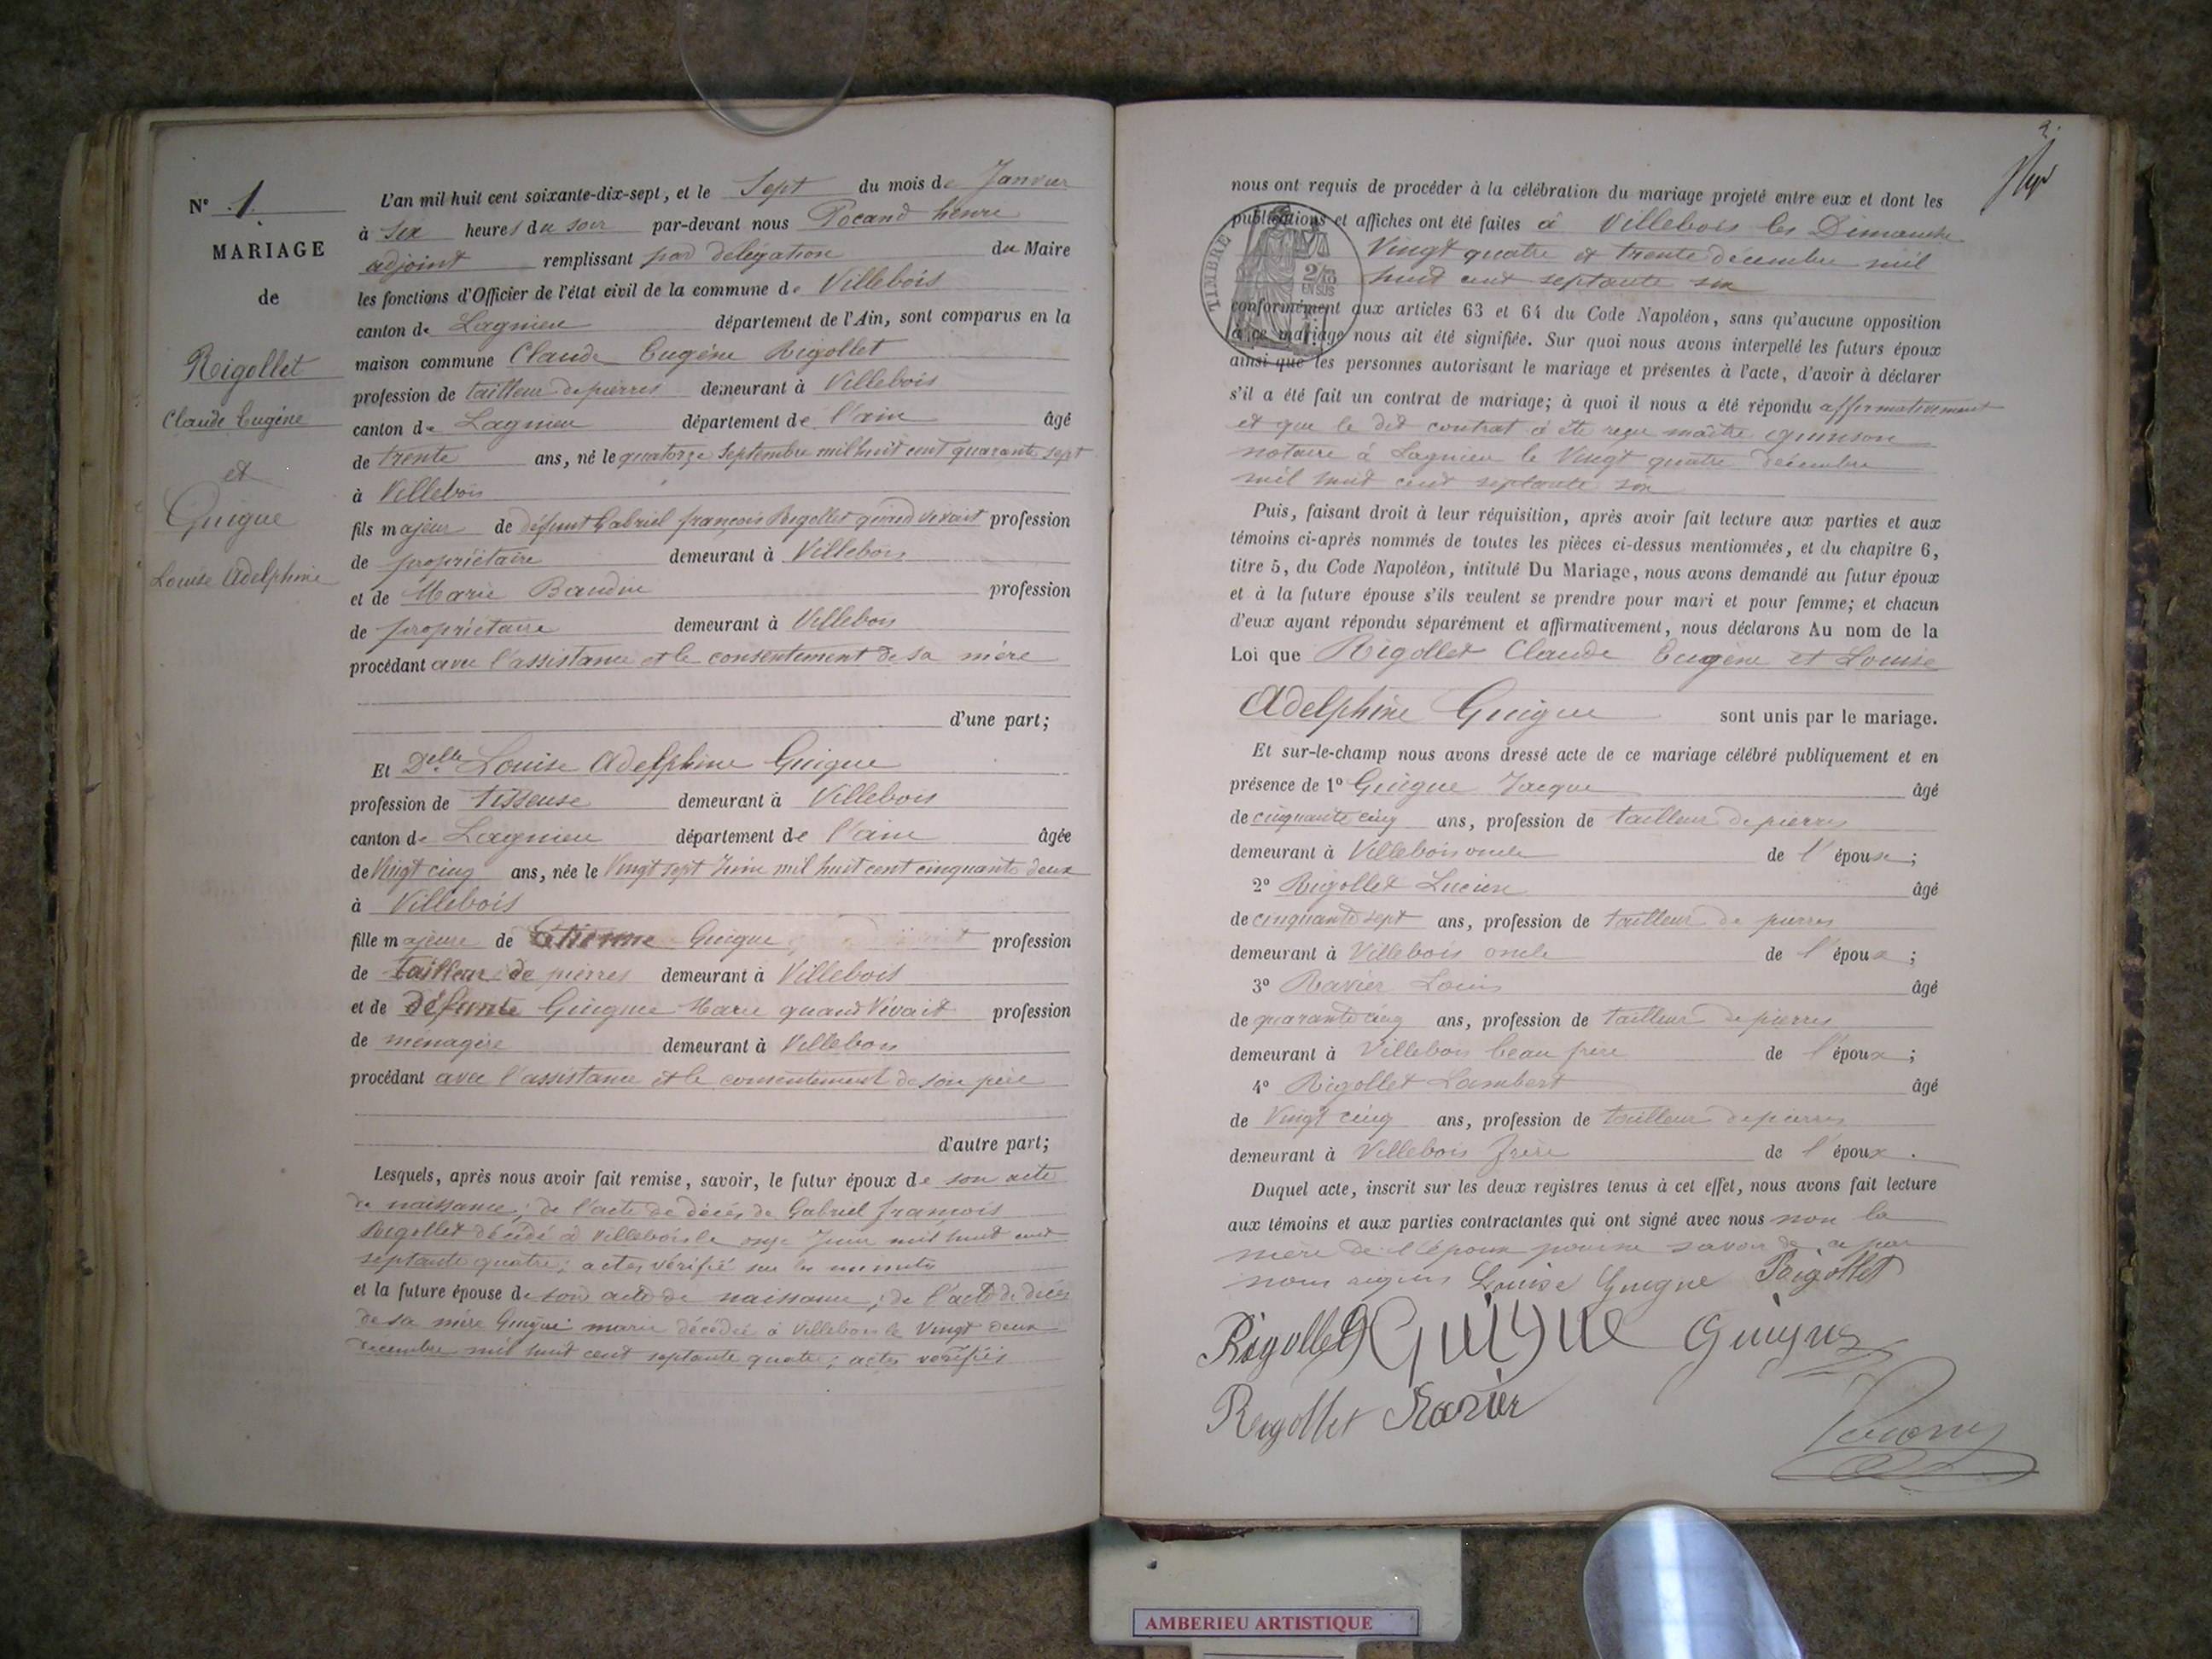 N° 1.
MARIAGE
de
Rigollet
Claude Eugéne
et
Guigue
Louise Adelphine
L'an mil huit cent soixante-dix-sept, et le Sept du mois de Janvier
à six heures du soir par-devant nous Pocand henri
adjoint remplissant par délégation du Maire
les fonctions d'Officier de l'état civil de la commune de Villebois
canton de Lagnieu département de l'Ain, sont comparus en la
maison commune Claude Eugéne Rigollet
profession de tailleur de pierres demeurant à Villebois
canton de Lagnieu département de l'ain âgé
de trente ans, né le quatorze Septembre mil huit cent quarante sept
à Villebois
fils majeur de défunt Gabriel françois Rigollet quand vivait profession
de propriétaire demeurant à Villebois
et de Marie Baudin profession
de propriétaire demeurant à Villebois
procédant avec l'assistance et le consentement de sa mère
d'une part;
Et Delle Louise Adelphine Guigue
profession de tisseuse demeurant à Villebois
canton de Lagnieu département de l'ain âgée
de Vingt cinq ans, née le Vingt sept Juin mil huit cent cinquante deux
à Villebois
fille majeure de Etienne Guigue profession
de tailleur de pierres demeurant à Villebois
et de défunte Guigue Marie quand Vivait profession
de ménagère demeurant à Villebois
procédant avec l'assistance et le consentement de son père
d'autre part;
Lesquels, après nous avoir fait remise, savoir, le futur époux de son acte
de naissance; de l'acte de décès de Gabriel françois
Rigollet décédé à Villebois le onze Juin mil huit cent
septante quatre; actes vérifié sur les minutes
et la future épouse de son acte de naissance; de l'acte de décès
de sa mère Guigue marie décédée à Villebois le Vingt deux
décembre mil huit cent septante quatre; actes vérifiés
2.
nous ont requis de procéder à la célébration du mariage projeté entre eux et dont les
publications et affiches ont été faites à Villebois les Dimanche
Vingt quatre et trente décembre mil
huit cent septante six
TIMBRE
2/10
EN SUS
conformément aux articles 63 et 64 du Code Napoléon, sans qu'aucune opposition
à ce mariage nous ait été signifiée. Sur quoi nous avons interpellé les futurs époux
ainsi que les personnes autorisant le mariage et présentes à l'acte, d'avoir à déclarer
s'il a été fait un contrat de mariage; à quoi il nous a été répondu affirmativement
et que le dit contrat a été reçu maître quinson
notaire à Lagnieu le Vingt quatre décembre
mil huit cent septante six
Puis, faisant droit à leur réquisition, après avoir fait lecture aux parties et aux
témoins ci-après nommés de toutes les pièces ci-dessus mentionnées, et du chapitre 6,
titre 5, du Code Napoléon, intitulé Du Mariage, nous avons demandé au futur époux
et à la future épouse s'ils veulent se prendre pour mari et pour femme; et chacun
d'eux ayant répondu séparément et affirmativement, nous déclarons Au nom de la
Loi que Rigollet Claude Eugéne et Louise
Adelphine Guigue sont unis par le mariage.
Et sur-le-champ nous avons dressé acte de ce mariage célébré publiquement et en
présence de 1° Guigue Jacque âgé
de cinquante cinq ans, profession de tailleur de pierres
demeurant à Villebois oncle de l'épouse;
2° Rigollet Lucien âgé
de cinquante sept ans, profession de tailleur de pierres
demeurant à Villebois oncle de l'époux;
3° Ravier Louis âgé
de quarante cinq ans, profession de tailleur de pierres
demeurant à Villebois beau frère de l'époux;
4° Rigollet Lambert âgé
de Vingt cinq ans, profession de tailleur de pierres
demeurant à Villebois frère de l'époux.
Duquel acte, inscrit sur les deux registres tenus à cet effet, nous avons fait lecture
aux témoins et aux parties contractantes qui ont signé avec nous non la
mère de l'époux pour ne savoir de ce par
nous requis Louise Guigue Rigollet
Rigollet Guigue Guigue
Rigollet Ravier
AMBERIEU ARTISTIQUE